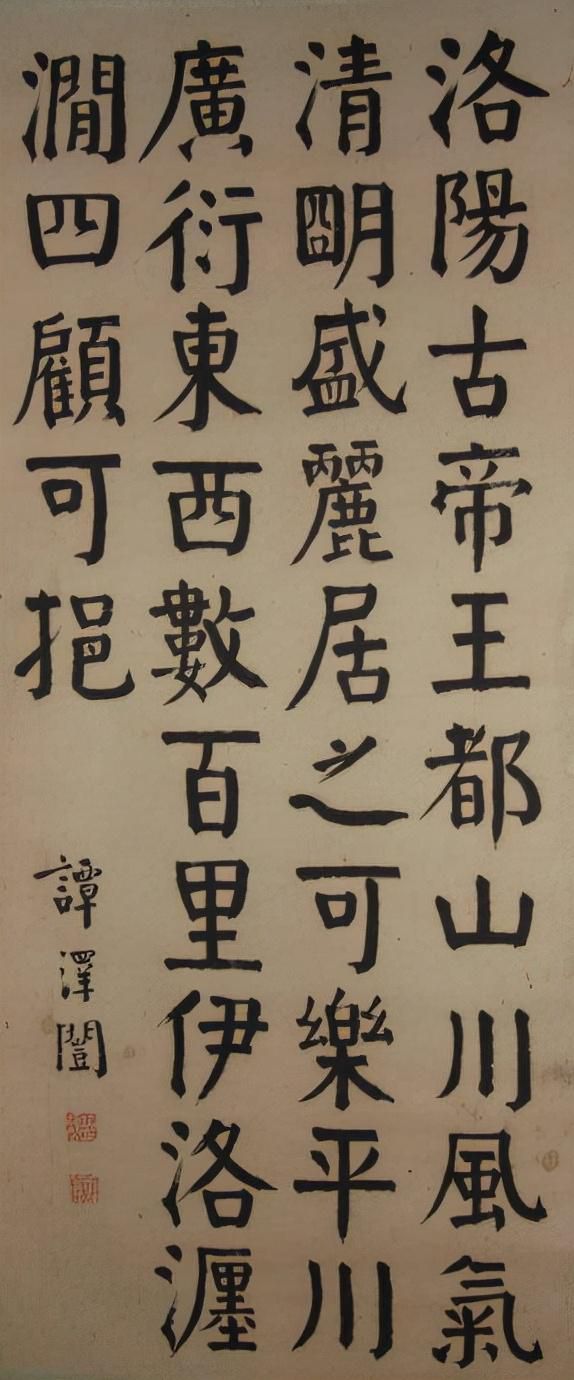 洛陽古帝王都山川風氣
清朙盛麗居之可樂平川
廣衍東西數百里伊洛瀍
澗四顧可挹
譚澤闓